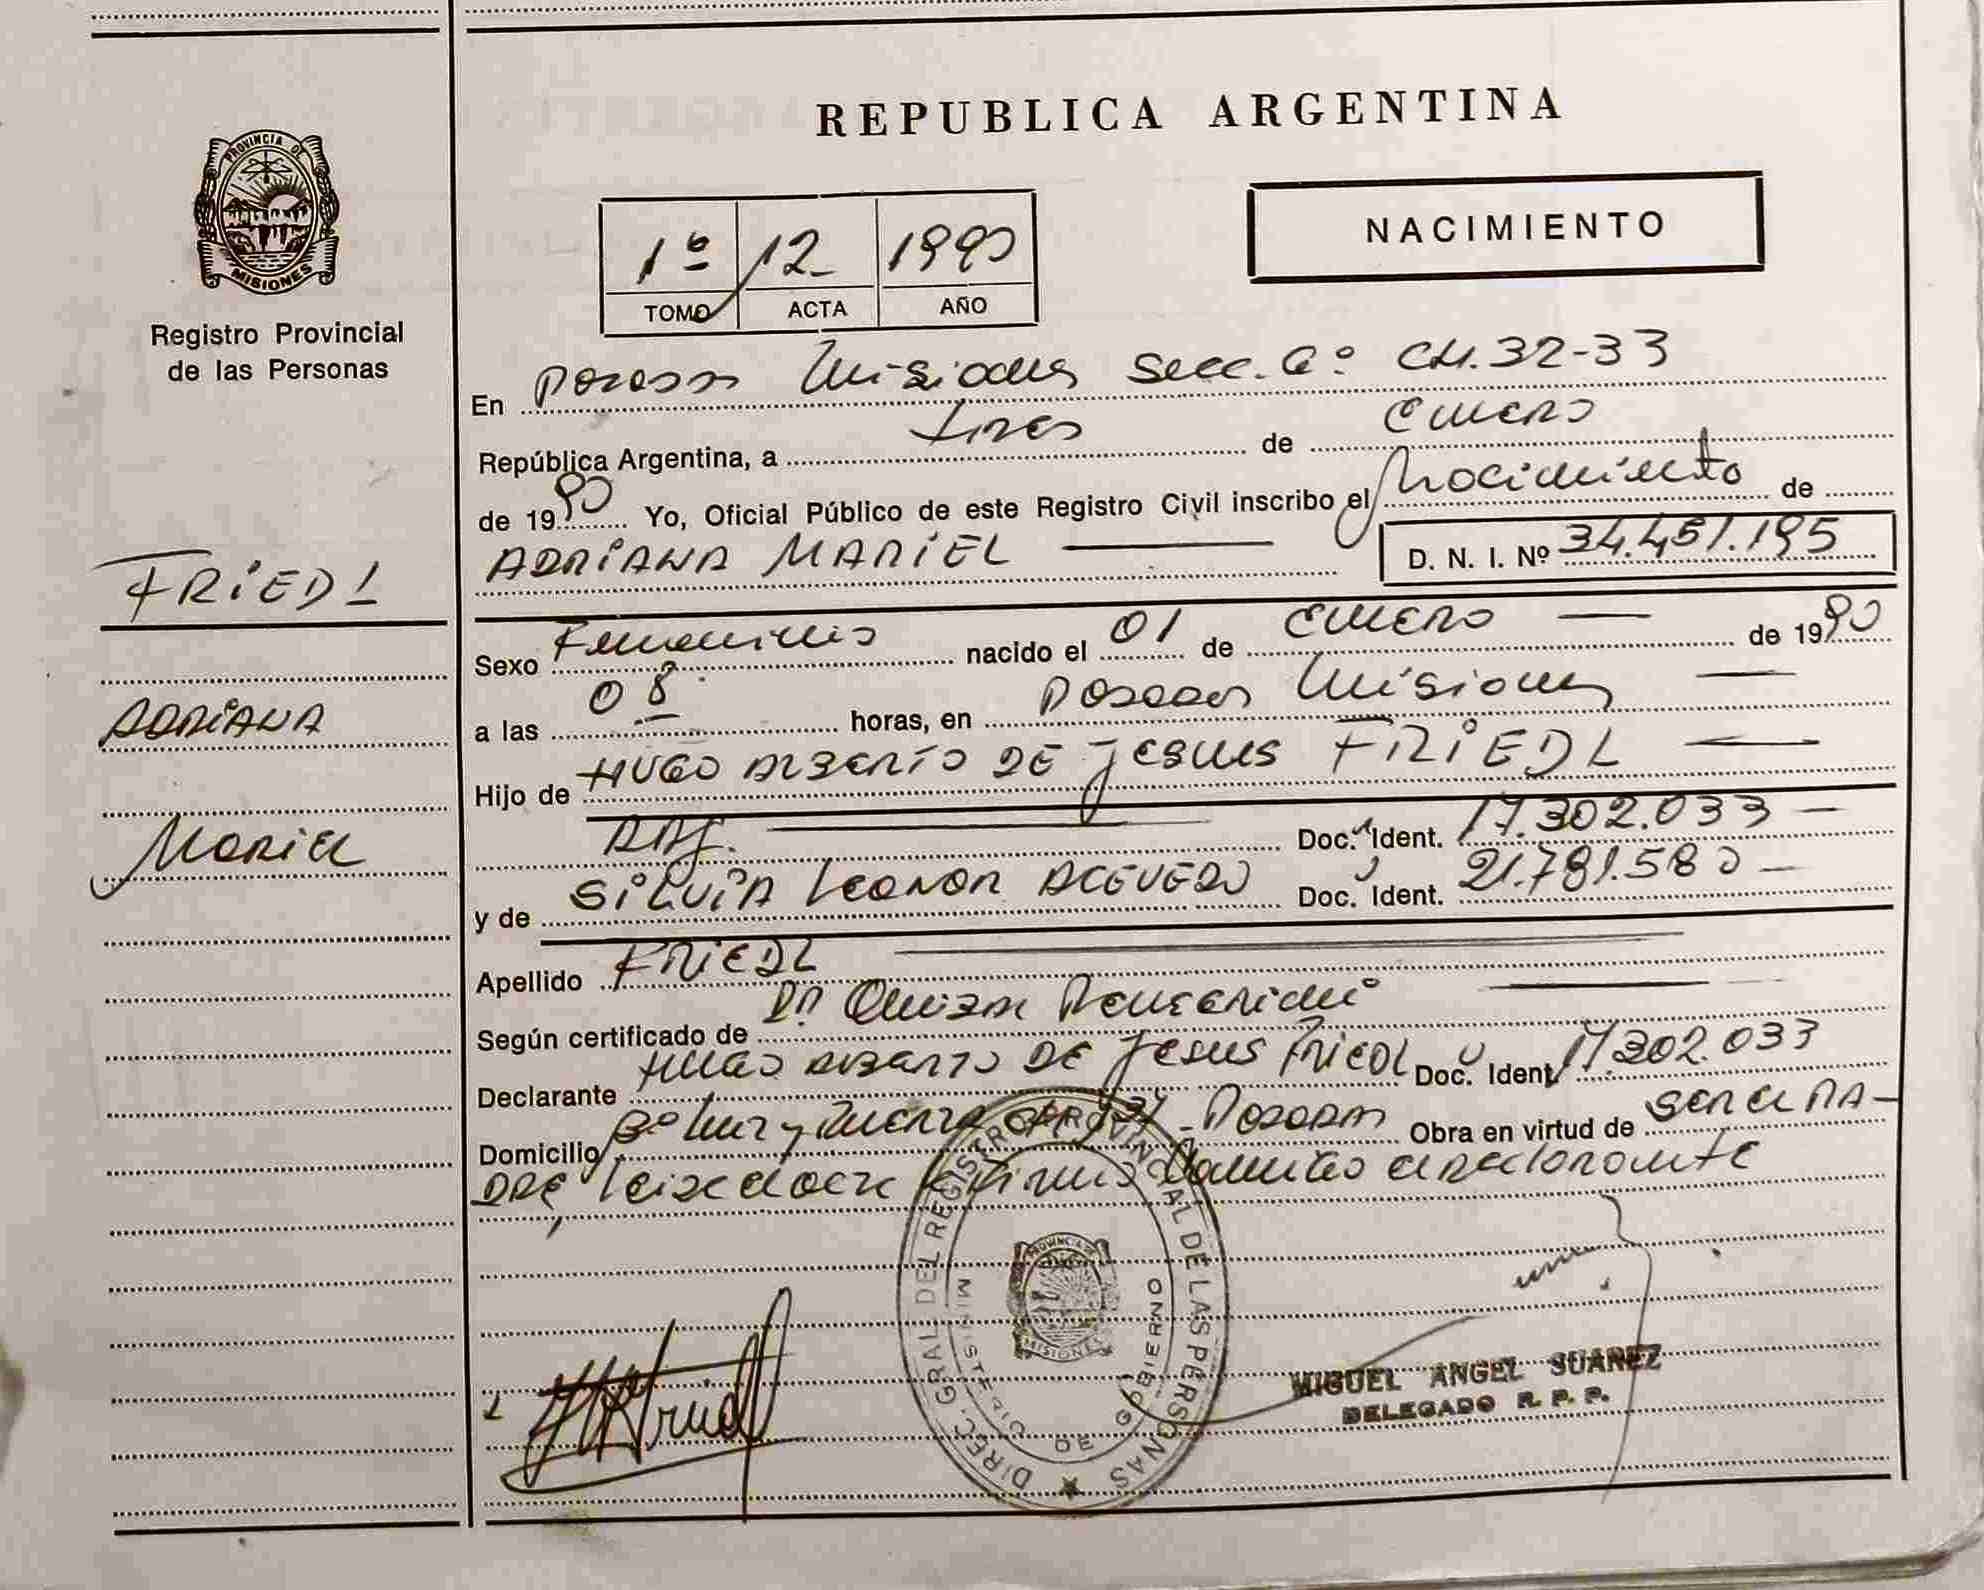 REPUBLICA ARGENTINA
PROVINCIA DE
MISIONES
Registro Provincial
de las Personas
1º 12 1990
TOMO ACTA AÑO
NACIMIENTO
En Posadas Misiones Secc. 6º CH. 32-33
República Argentina, a tres de Enero
de 1990 Yo, Oficial Público de este Registro Civil inscribo el Nacimiento de
ADRIANA MARIEL D. N. I. Nº 34.451.195
FRIEDL
ADRIANA
MARIEL
Sexo Femenino nacido el 01 de Enero de 1990
a las 08 horas, en Posadas Misiones
Hijo de HUGO ALBERTO DE JESUS FRIEDL
ARG. Doc. Ident. 17.302.033
y de SILVIA LEONOR ACEVEDO Doc. Ident. 21.781.580
Apellido FRIEDL
Según certificado de DR.
Declarante HUGO ALBERTO DE JESUS FRIEDL Doc. Ident 17.302.033
Domicilio Bº Luz y Fuerza Posadas Obra en virtud de SER EL PA-
DRE, Leida el acta la firma conmigo el declarante
DIREC. GRAL. DEL REGISTRO PROVINCIAL DE LAS PERSONAS
MINISTERIO DE GOBIERNO
PROVINCIA DE
MISIONES
MIGUEL ANGEL SUAREZ
DELEGADO R. P. P.